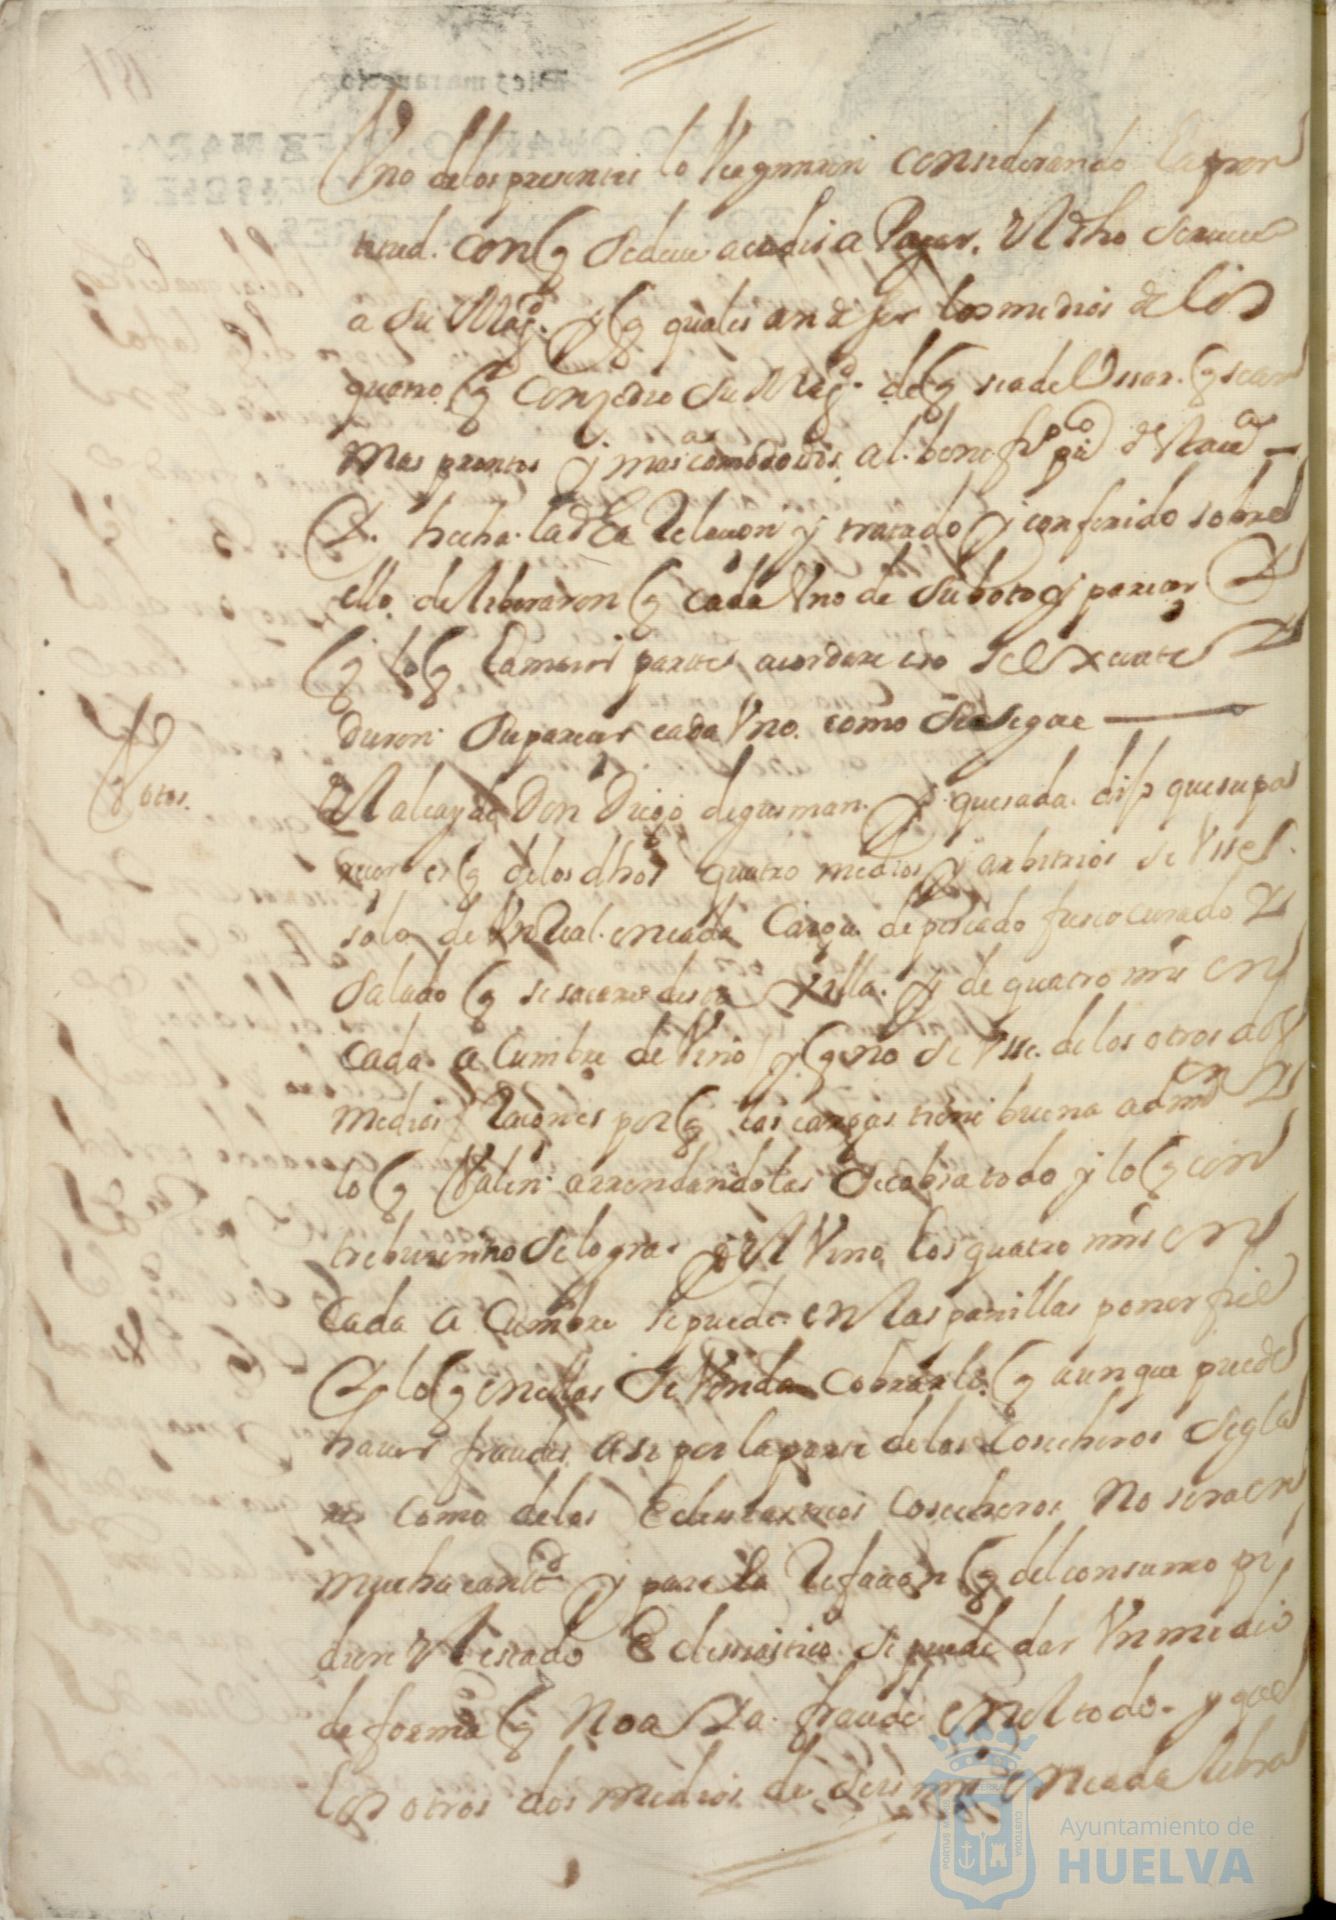 Uno de los presentes lo Vea y mire considerando la pron
titud. con q se deue acudir a Pagar. el dho seruicio
a Su Magd. y q quales an de ser los medios de los
quatro q Conzedio Su Magd. de q sea de Ussar. q sean
Mas prontos y mas comodos al benefº puco de Vaca
hecha. la dha Relacion y tratado y conferido sobre
ello deliberaron q cada Uno de Su boto y parecer
q lo q la maior parte acordare eso se execute
dieron Su parecer cada Uno. como Se Sigue
Votos.
El alcayde Don Diego de gusman. y quesada. dijo que su pa
recer es q de los dhos quatro medios y arbitrios se Usse
solo de Un Real. en cada Carga de pescado fresco curado
Salado q se sacare desta Villa. y de quatro mrs en
cada açumbre de Vino y q no se Use. de los otros dos
medios Raçones por q las cargas tiene buena admon
lo q Valen arrendandolas Se cobra todo y lo q con
tribuien no se logra. y el Vino los quatro mrs en
Cada açumbre se puede en las panillas poner fiel
lo q en ellas Se Venda Cobrarlo. q aunque puede
hauer fraudes asi por la parte de los Cosecheros Segla
res como de los Eclesiasticos Cosecheros No sera en
mucha cantd y para la Refacion q del consumo pi
diere el estado Eclesiastico Se puede dar Un medio
de forma q No aya fraude en el todo. y que
los otros dos medios de Seis mrs en cada libra
Ayuntamiento de
HUELVA